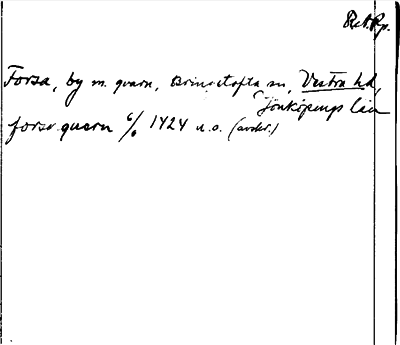 RAp.
Forsa, by m. qvarn, Bringetofta sn, Västra hd,
Jönköpings län
forsa quern 6/6 1424 u.s. (avskr.)